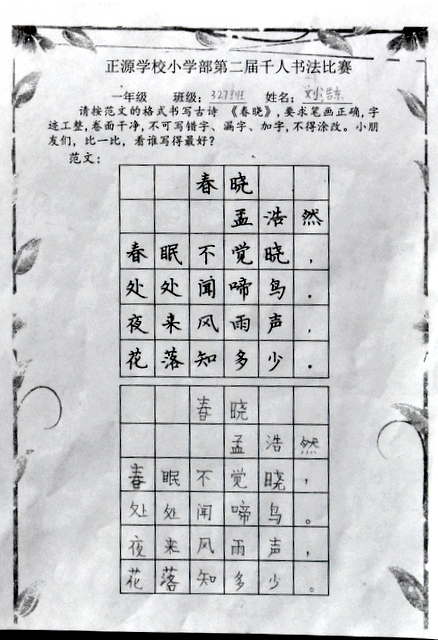 正源学校小学部第二届千人书法比赛
一年级 班级：327班 姓名：刘浩东
请按范文的格式书写古诗《春晓》，要求笔画正确，字
迹工整，卷面干净，不可写错字、漏字、加字，不得涂改。小朋
友们，比一比，看谁写得最好？
范文：
春晓
孟浩然
春眠不觉晓，
处处闻啼鸟。
夜来风雨声，
花落知多少。
春晓
孟浩然
春眠不觉晓，
处处闻啼鸟。
夜来风雨声，
花落知多少。